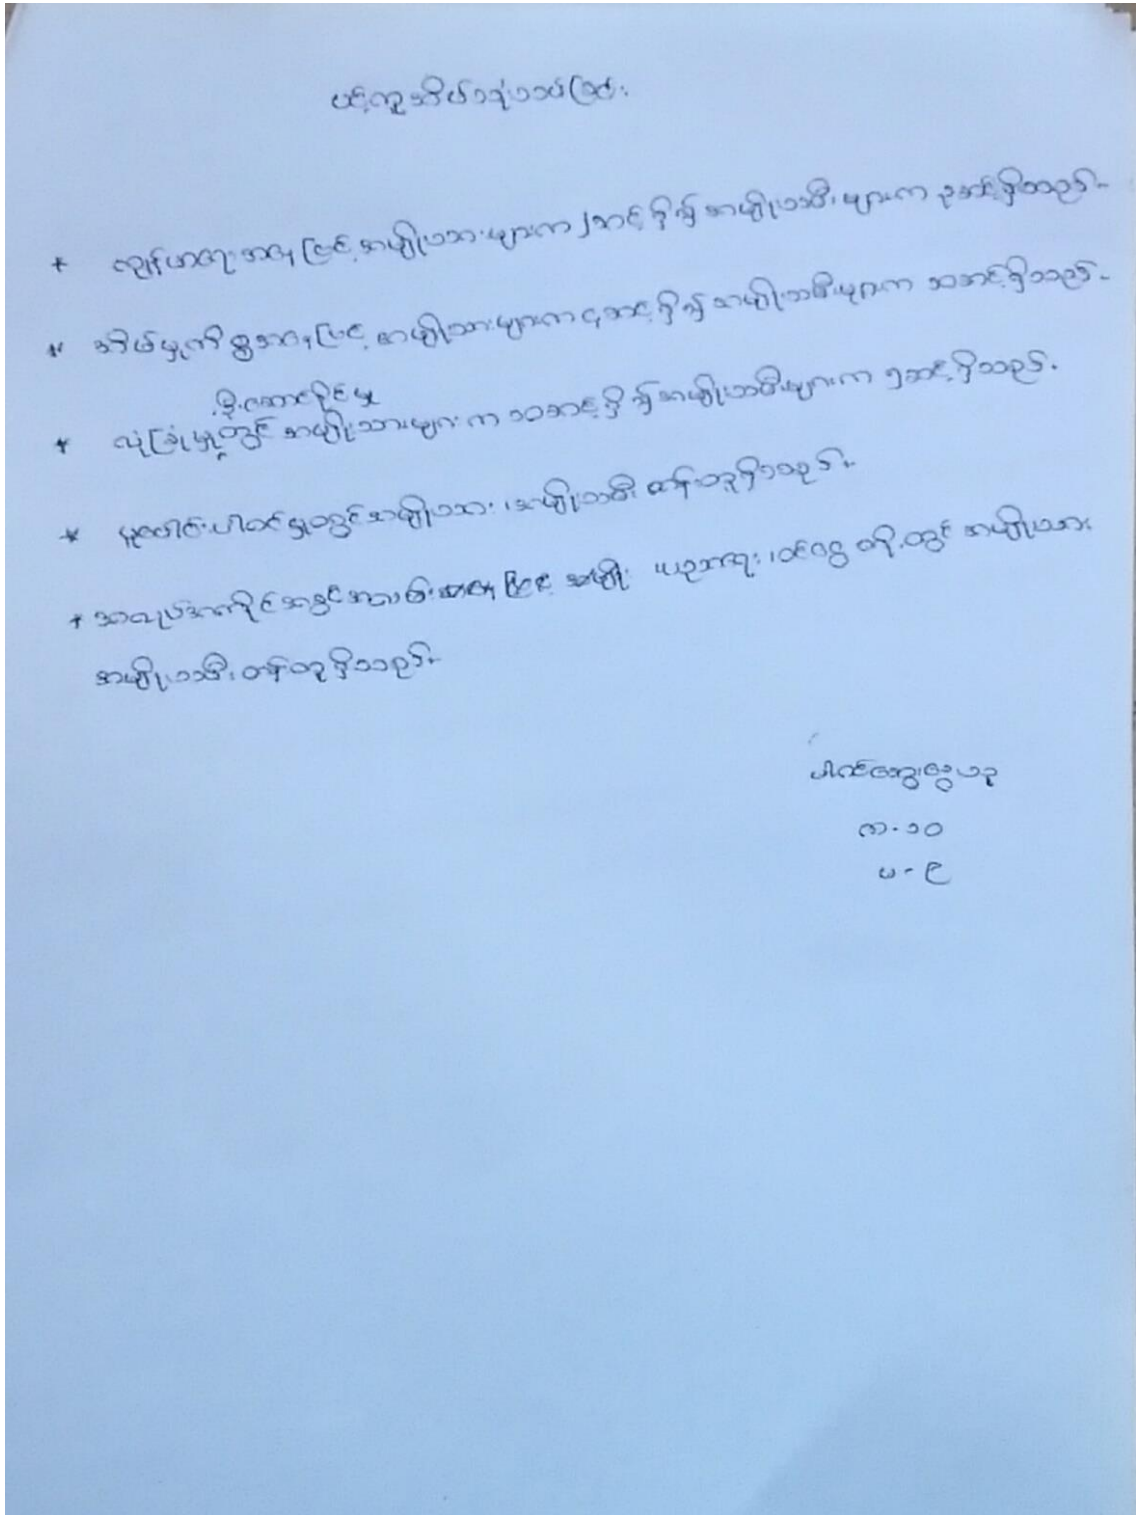 ပင့်ကူအိမ်သုံးသပ်ခြင်း
* ကျန်းမာရေးအရ ဖြင့် အမျိုးသားများက ၂ဆင့် ရှိ၍ အမျိုးသမီးများက ၃ဆင့်ရှိသည်။
* အိမ်မှုကိစ္စအရ ဖြင့် အမျိုးသားများက ၄ဆင့် ရှိ၍ အမျိုးသမီးများက ၁၀ဆင့်ရှိသည်။
ဦးဆောင်နိုင်မှု
* လုံခြုံမှုတွင် အမျိုးသားများက ၁၀ဆင့် ရှိ၍ အမျိုးသမီးများက ၅ဆင့် ရှိသည်။
* ပူးပေါင်းပါဝင်မှုတွင် အမျိုးသား၊ အမျိုးသမီး တန်းတူရှိသည်။
* အလုပ်အကိုင်အခွင့်အလမ်း ပညာရေး၊ ဝင်ငွေ တို့တွင် အမျိုးသား
အမျိုးသမီး တန်းတူရှိသည်။
ပါဝင်ဆွေးနွေးသူ
က - ၁၀
မ - ၉